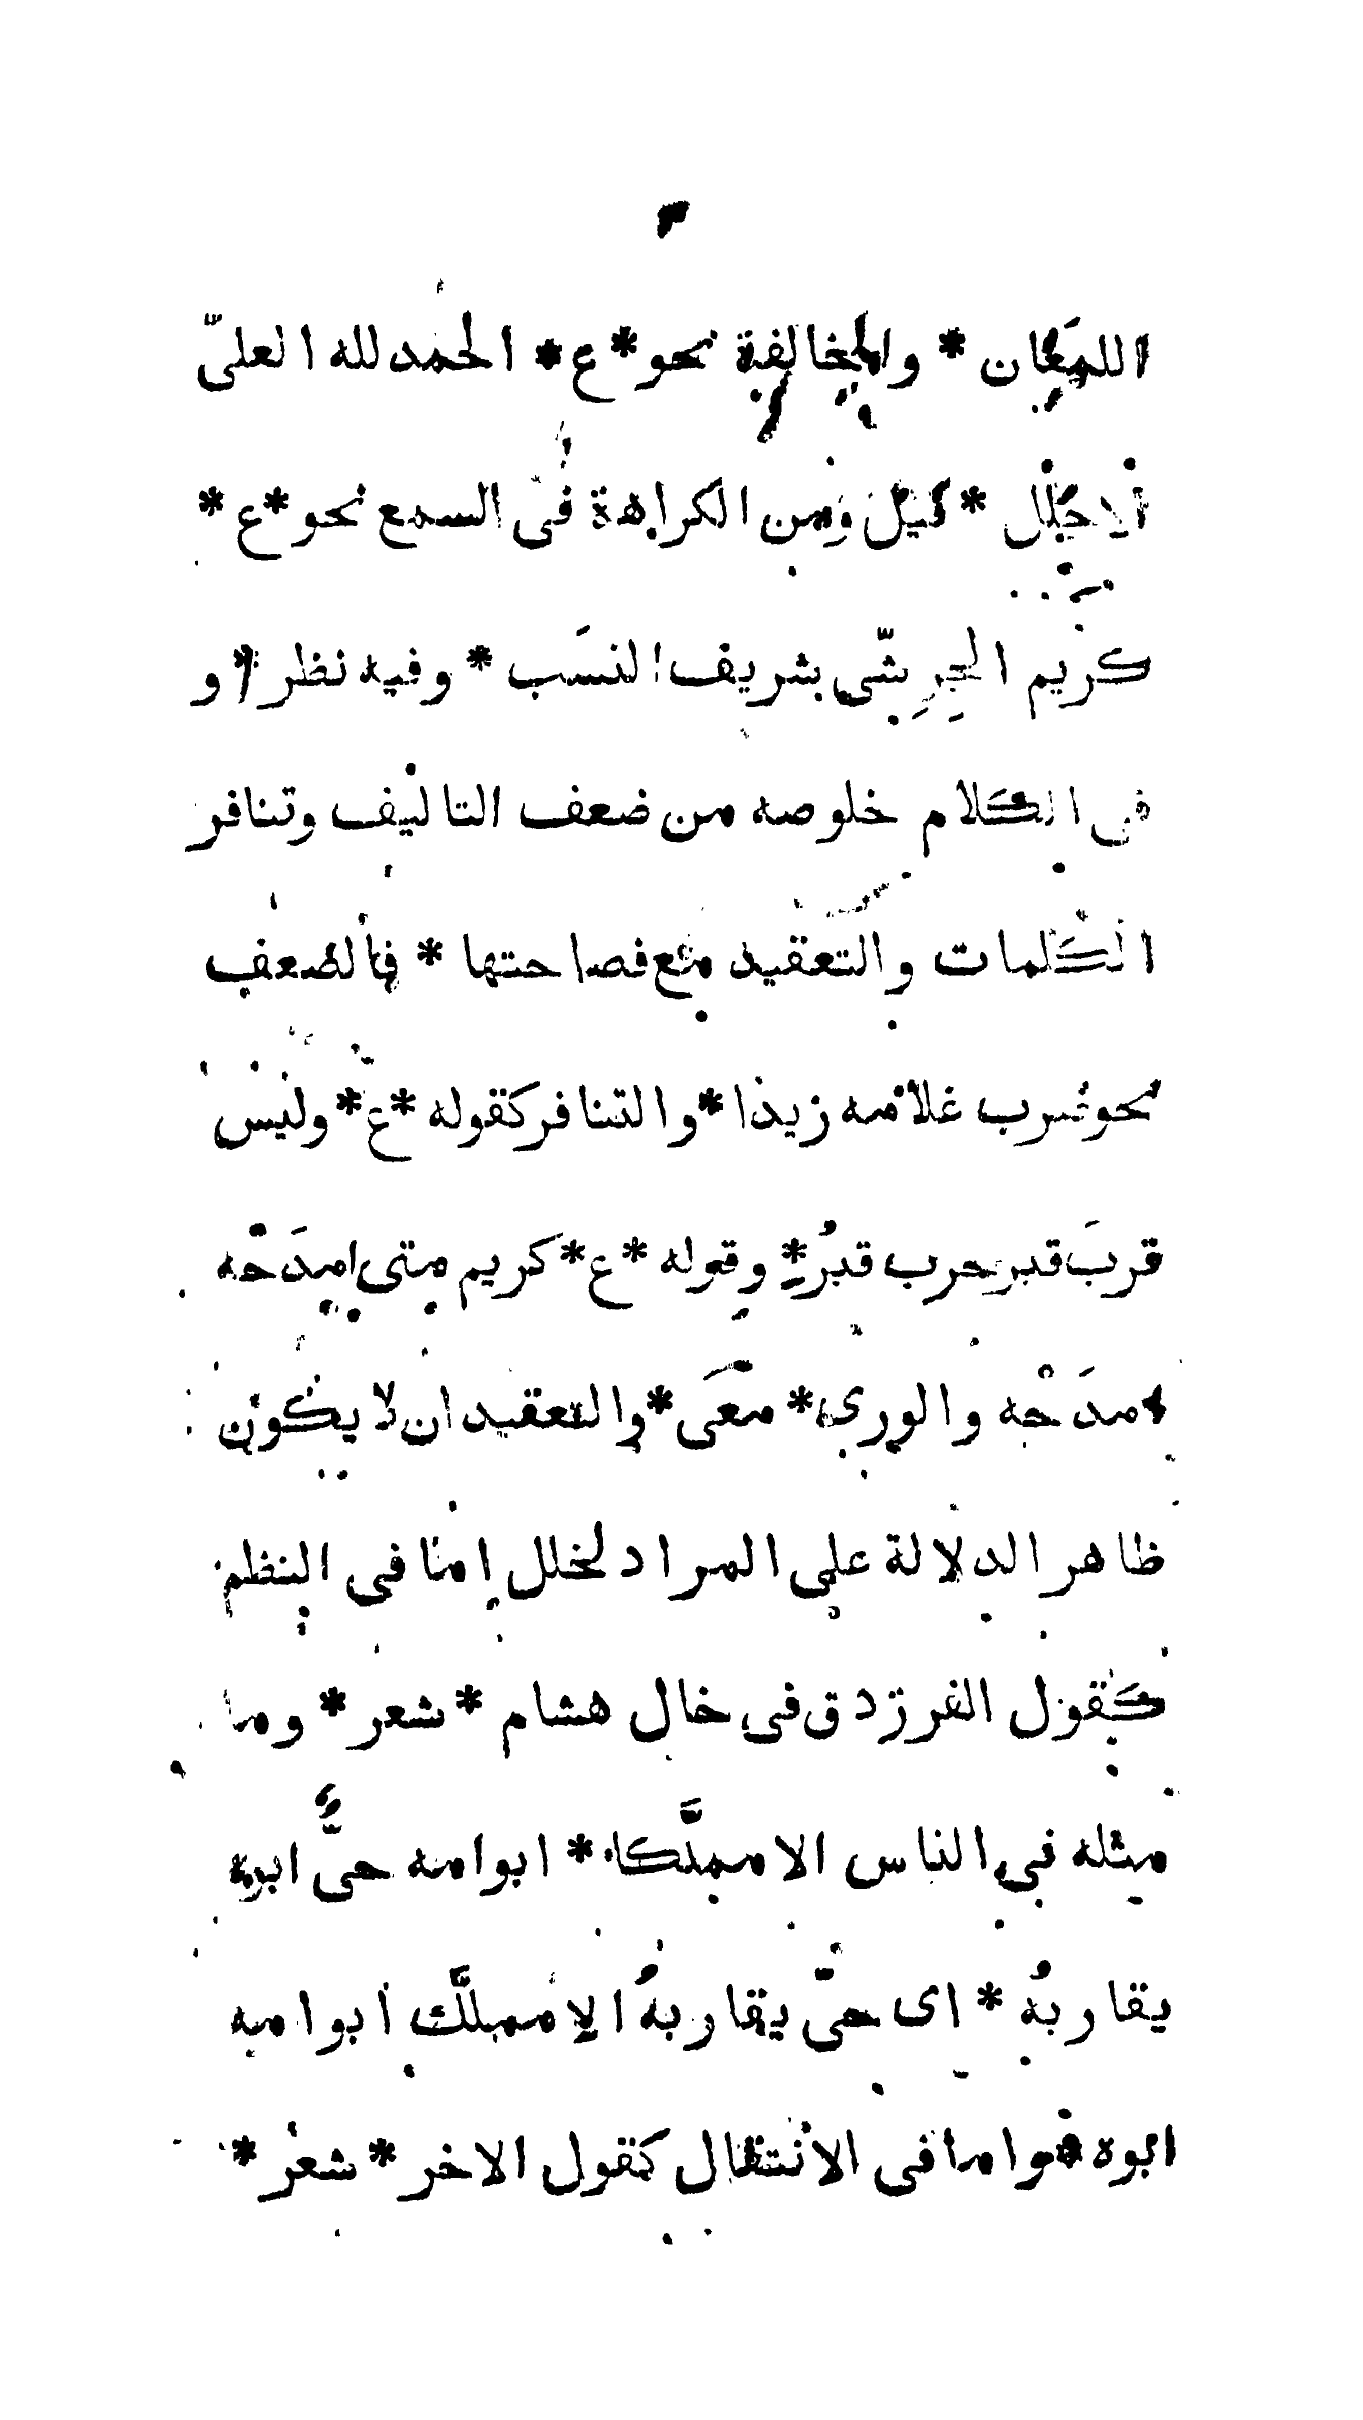 ٣
اللمعان * والمخالفة نحو * ع * الحمد لله العلىّ
الاجلل * قيل ومن الكراهة فى السمع نحو * ع *
كريم الجِرِشّى شريف النسَب * وفيه نظر * و
فى الكلام خلوصه من ضعف التاليف وتنافر
الكلمات والتعقيد مع فصاحتها * فالضعف
نحو ضرب غلامه زيدا * والتنافر كقوله * ع * وليس
قربَ قبر حرب قبرُ * وقوله * ع * كريم متى امدَحْه
امدَحْه والورى * معَى * والتعقيد ان لا يكون
ظاهر الدلالة على المراد لخلل إما فى النظم
كقول الفرزدق فى خال هشام * شعر * وما
مثله فى الناس الا مملَّكا * ابوامه حىٌّ ابوه
يقاربُه * اى حىّ يقاربهُ الا مملَّك ابوامه
ابوه * واما فى الانتقال كقول الاخر * شعر *